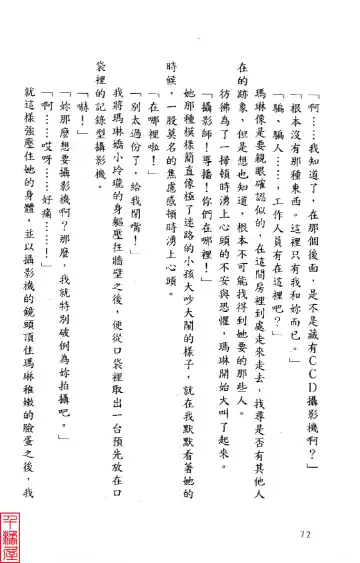 「啊……我知道了，在那個後面，是不是藏有CCD攝影機啊？」
「根本沒有那種東西。這裡只有我和妳而已。」
「騙、騙人……，工作人員有在這裡吧？」
瑪琳像是要親眼確認似的，在這間房裡到處走來走去，找尋是否有其他人
在的跡象，但是想也知道，根本不可能找得到她要的那些人。
彷彿為了一掃頓時湧上心頭的不安與恐懼，瑪琳開始大叫了起來。
「攝影師！導播！你們在哪裡！」
她那種模樣簡直像極了迷路的小孩大吵大鬧的樣子，就在我默默看著她的
時候，一股莫名的焦慮感頓時湧上心頭。
「在哪裡啦！」
「別太過份了，給我閉嘴！」
我將瑪琳嬌小玲瓏的身軀壓往牆壁之後，便從口袋裡取出一台預先放在口
袋裡的記錄型攝影機。
「嚇！」
「妳那麼想要攝影機啊？那麼，我就特別破例為妳拍攝吧。」
「啊……哎呀……好痛……！」
就這樣強壓住她的身體，並以攝影機的鏡頭頂住瑪琳稚嫩的臉蛋之後，我
72